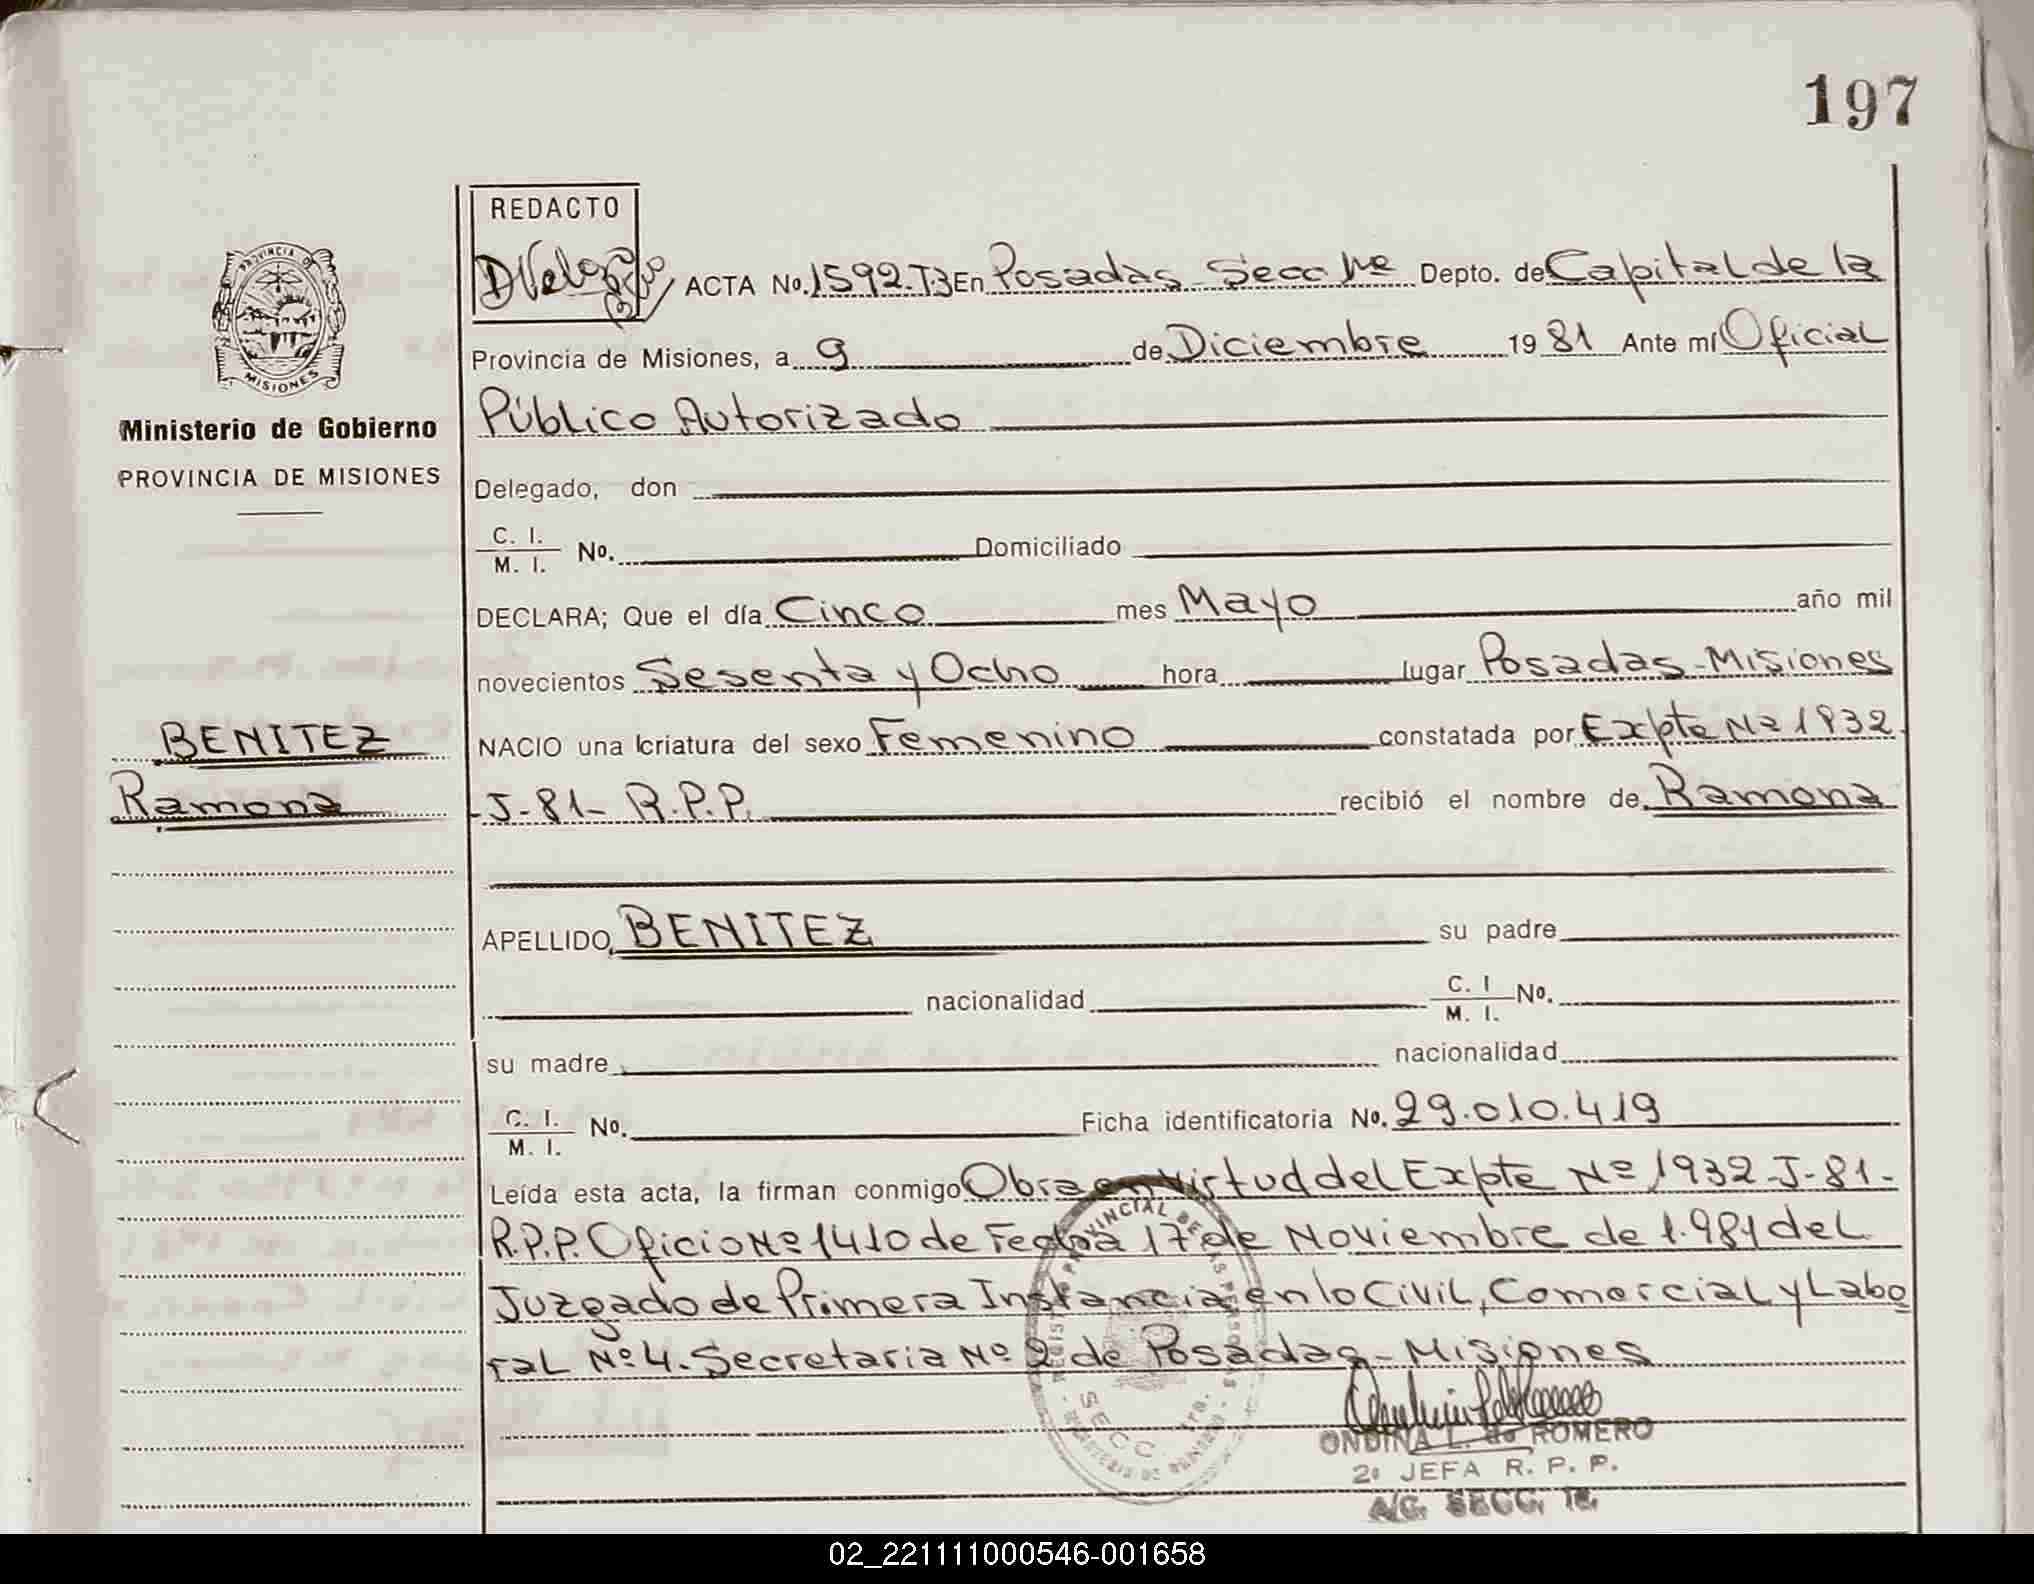 197
REDACTO
PROVINCIA DE
MISIONES
ACTA No. 1592.T3 En Posadas Secc 1ra Depto. de Capital de la
Provincia de Misiones, a 9 de Diciembre 19 81 Ante mí Oficial
Público Autorizado
Ministerio de Gobierno
PROVINCIA DE MISIONES
Delegado, don
C. I.
M. I. No. Domiciliado
DECLARA; Que el día Cinco mes Mayo año mil
novecientos Sesenta y Ocho hora lugar Posadas-Misiones
BENITEZ
NACIO una criatura del sexo Femenino constatada por Expte Nº 1932
Ramona
-J-81- R.P.P. recibió el nombre de Ramona
APELLIDO BENITEZ su padre
nacionalidad C. I
M. I. No.
su madre nacionalidad
C. I.
M. I. No. Ficha identificatoria No. 29.010.419
Leída esta acta, la firman conmigo Obra en virtud del Expte Nº 1932-J-81-
R.P.P. Oficio Nº 1410 de Fecha 17 de Noviembre de 1.981 del
Juzgado de Primera Instancia en lo Civil, Comercial y Labo
ral Nº 4. Secretaria Nº 2 de Posadas-Misiones
REGISTRO PROVINCIAL DE LAS PERSONAS
SECC. 1ra.
MINISTERIO DE GOBIERNO
ONDINA L. de ROMERO
2º JEFA R. P. P.
A/C. SECC. 1ª.
02_221111000546-001658